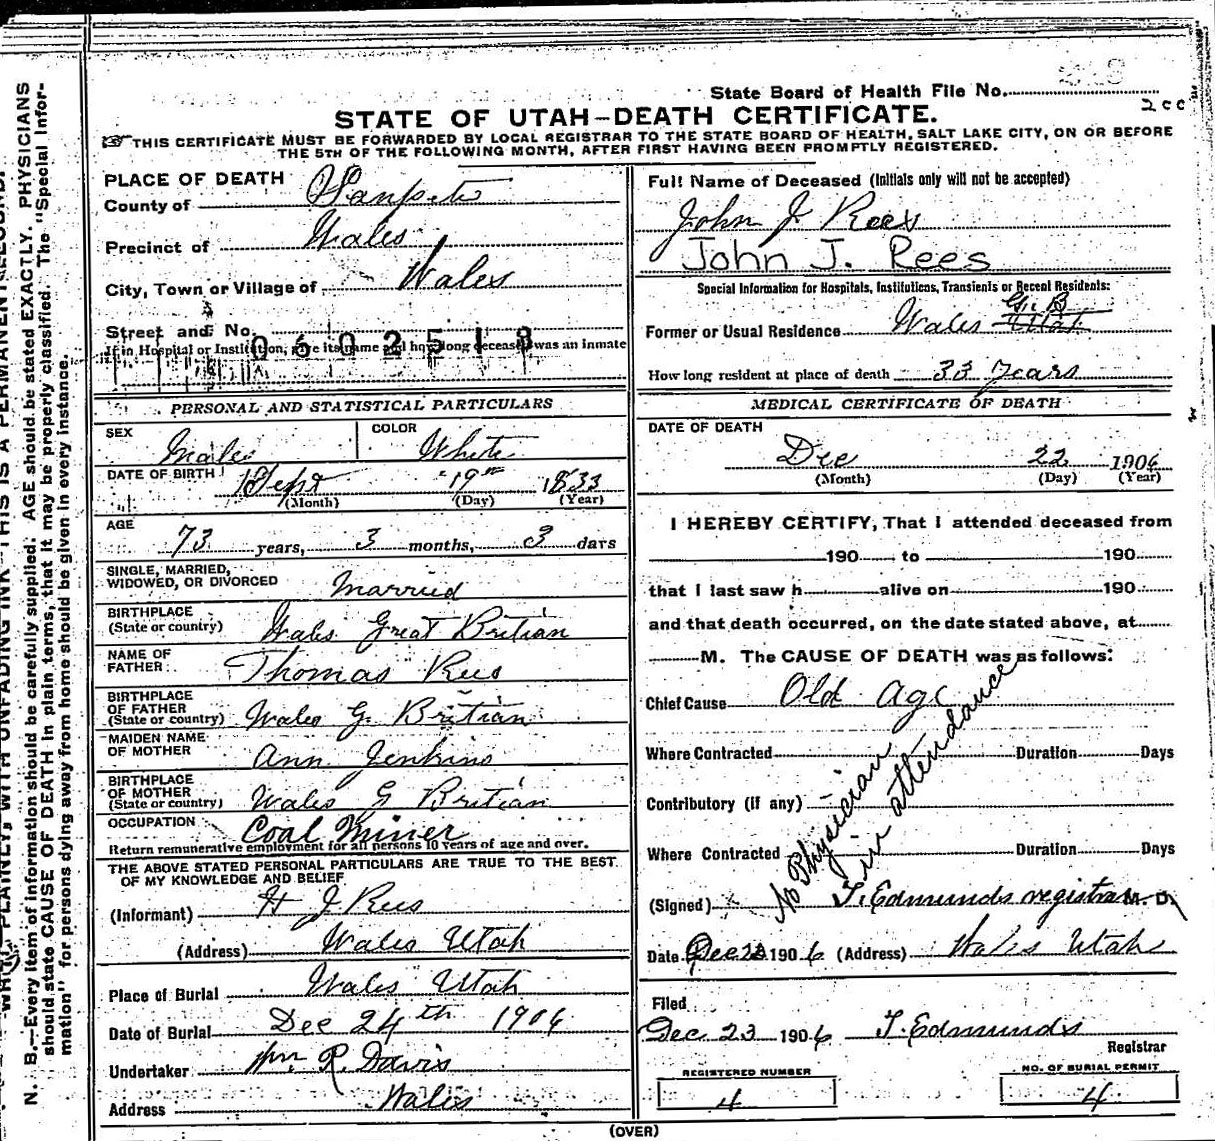 State Board of Health File No.
200
STATE OF UTAH–DEATH CERTIFICATE.
THIS CERTIFICATE MUST BE FORWARDED BY LOCAL REGISTRAR TO THE STATE BOARD OF HEALTH, SALT LAKE CITY, ON OR BEFORE
THE 5TH OF THE FOLLOWING MONTH, AFTER FIRST HAVING BEEN PROMPTLY REGISTERED.
PLACE OF DEATH
County of Sanpete
Precinct of Wales
City, Town or Village of Wales
Street and No.
0602518
If in Hospital or Institution, give its name and how long deceased was an inmate
PERSONAL AND STATISTICAL PARTICULARS
SEX COLOR
Male White
DATE OF BIRTH Sept 19th 1833
(Month) (Day) (Year)
AGE
73 years, 3 months, 3 days
SINGLE, MARRIED,
WIDOWED, OR DIVORCED Married
BIRTHPLACE
(State or country) Wales Great Britian
NAME OF
FATHER Thomas Rees
BIRTHPLACE
OF FATHER
(State or country) Wales G. Britian
MAIDEN NAME
OF MOTHER Ann Jenkins
BIRTHPLACE
OF MOTHER
(State or country) Wales G Britian
OCCUPATION Coal Miner
Return remunerative employment for all persons 10 years of age and over.
THE ABOVE STATED PERSONAL PARTICULARS ARE TRUE TO THE BEST
OF MY KNOWLEDGE AND BELIEF
(Informant) H J Rees
(Address) Wales Utah
Place of Burial Wales Utah
Date of Burial Dec 24th 1906
Undertaker Wm R. Davis
Address Wales
Full Name of Deceased (Initials only will not be accepted)
John J Rees
John J. Rees
Special Information for Hospitals, Institutions, Transients or Recent Residents:
G. B
Former or Usual Residence Wales Utah
How long resident at place of death 33 Years
MEDICAL CERTIFICATE OF DEATH
DATE OF DEATH
Dec 22 1906
(Month) (Day) (Year)
I HEREBY CERTIFY, That I attended deceased from
190 to 190
that I last saw h alive on 190
and that death occurred, on the date stated above, at
M. The CAUSE OF DEATH was as follows:
Chief Cause Old age
Where Contracted Duration Days
Contributory (if any)
Where Contracted Duration Days
No Physician
in attendance
(Signed) T. Edmunds registrar M. D.
Date Dec 1906 (Address) Wales Utah
Filed
Dec. 23 1906 T. Edmunds
Registrar
REGISTERED NUMBER NO. OF BURIAL PERMIT
4 4
(OVER)
WRITE PLAINLY, WITH UNFADING INK—THIS IS A PERMANENT RECORD.
N. B.—Every item of information should be carefully supplied. AGE should be stated EXACTLY. PHYSICIANS
should state CAUSE OF DEATH in plain terms, that it may be properly classified. The "Special Infor-
mation" for persons dying away from home should be given in every instance.